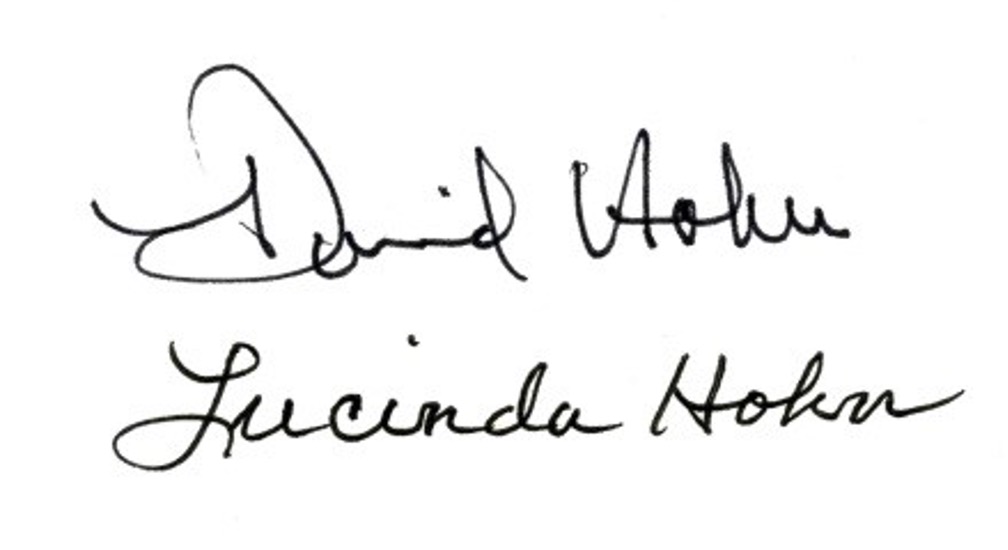 David Hohn
Lucinda Hohn